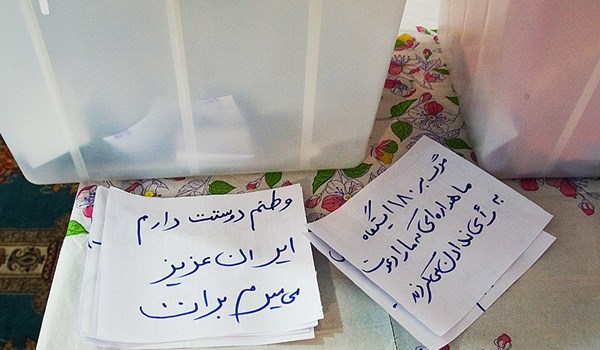 وطنم دوستت دارم
ایران عزیز
می میرم برات
مرگ بر ۱۸۰ ایستگاه
ماهواره ای که ما را دعوت
به رأی ندادن می کردند